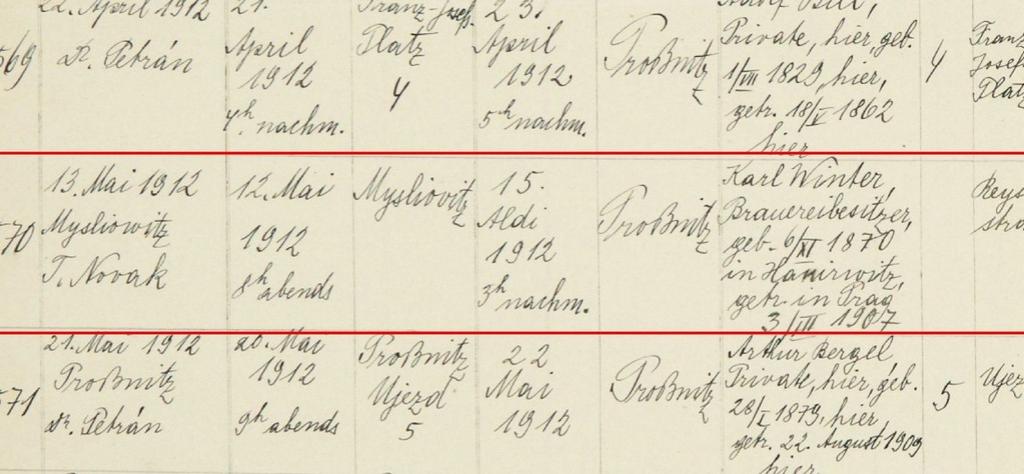 22. April 1912
569
Dr. Petrán
21.
April
1912
4h nachm.
Franz-Josef
Platz
4
23.
April
1912
5h nachm.
Proßnitz
Private, hier, geb.
1/VIII 1829, hier,
getr. 18/V 1862
hier
4
Franz
Josef
Platz
570
13. Mai 1912
Mysliowitz
T. Novak
12. Mai
1912
8h abends
Mysliovitz
15.
1912
3h nachm.
Proßnitz
Karl Winter,
Brauereibesitzer,
geb. 6/XI 1870
in
getr. in Prag
3/III 1907
571
21. Mai 1912
Proßnitz
Dr. Petrán
20. Mai
1912
9h abends
Proßnitz
Ujezd
5
22
Mai
1912
Proßnitz
Arthur Bergel
Private, hier, geb.
28/I 1879, hier,
getr. 22. August 1909
hier
5
Ujez